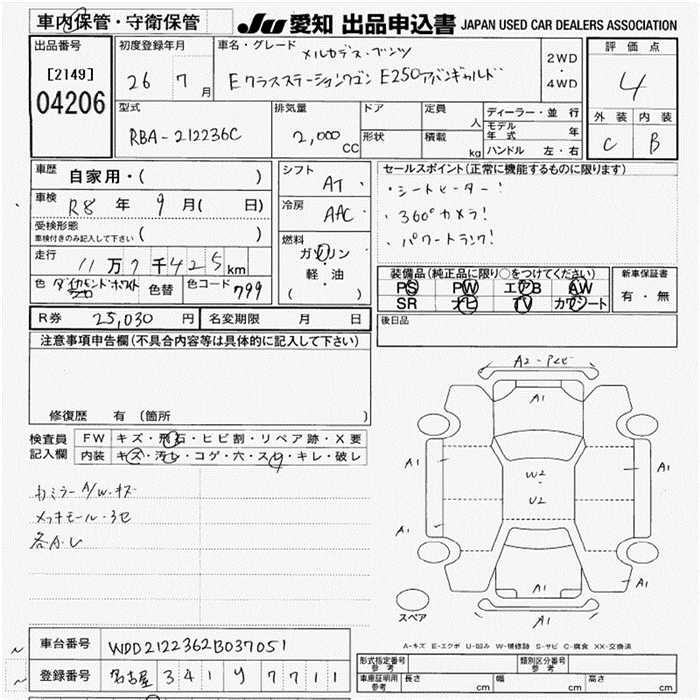 車内保管・守衛保管
JU 愛知 出品申込書 JAPAN USED CAR DEALERS ASSOCIATION
出品番号
[2149]
04206
初度登録年月
26 7 月
車名・グレード
メルセデス・ベンツ
Eクラスステーションワゴン E250アバンギャルド
2WD
・
4WD
評価点
4
外装 内装
C B
型式
RBA-212236C
排気量
2,000 cc
ドア
形状
定員 人
積載 kg
ディーラー・並行
モデル年式 年
ハンドル 左・右
車歴 自家用・( )
車検 R8 年 9 月( 日)
受検形態
車検付きのみ記入して下さい ( )
走行 11 万 7 千 425 km
色 ダイヤモンドホワイト 色替 色コード 799
シフト AT
冷房 AAC
燃料
ガソリン
軽・油
( )
セールスポイント(正常に機能するものに限ります)
・シートヒーター!
・360°カメラ!
・パワートランク!
装備品(純正品に限り○をつけてください)
PS PW エアB AW
SR ナビ TV カワシート
新車保証書
有・無
後日品
R券 25,030 円 名変期限 月 日
注意事項申告欄(不具合内容等は具体的に記入して下さい)
修復歴 有 (箇所 )
検査員記入欄
FW キズ・飛石・ヒビ割・リペア跡・X要
内装 キズ・汚レ・コゲ・穴・スレ・キレ・破レ
カミラー A/W・キズ
メッキモール・サビ
各A・U
A2-Pレビ
A1
A1
A1
W2
U2
A1
A1
A1
A1
スペア
A-キズ E-エクボ U-凹み W-補修跡 S-サビ C-腐食 XX-交換済
車台番号 WDD2122362B037051
登録番号 名古屋 341 リ 7711
形式指定番号 参考
類別区分番号 参考
車庫証明用 参考 長さ cm 幅 cm 高さ cm